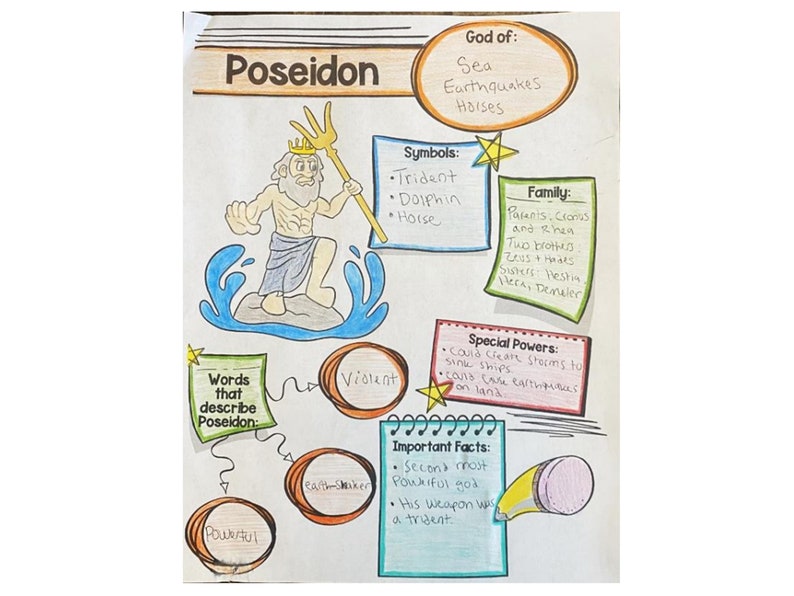 Poseidon
God of:
Sea
Earthquakes
Horses
Symbols:
• Trident
• Dolphin
• Horse
Family:
Parents: Cronus
and Rhea
Two brothers:
Zeus + Hades
Sisters: Hestia,
Hera, Demeter
Special Powers:
• Could create storms to
sink ships.
• Could cause earthquakes
on land.
Words
that
describe
Poseidon:
Violent
earth-shaker
Powerful
Important Facts:
• Second most
Powerful god
• His weapon was
a trident.